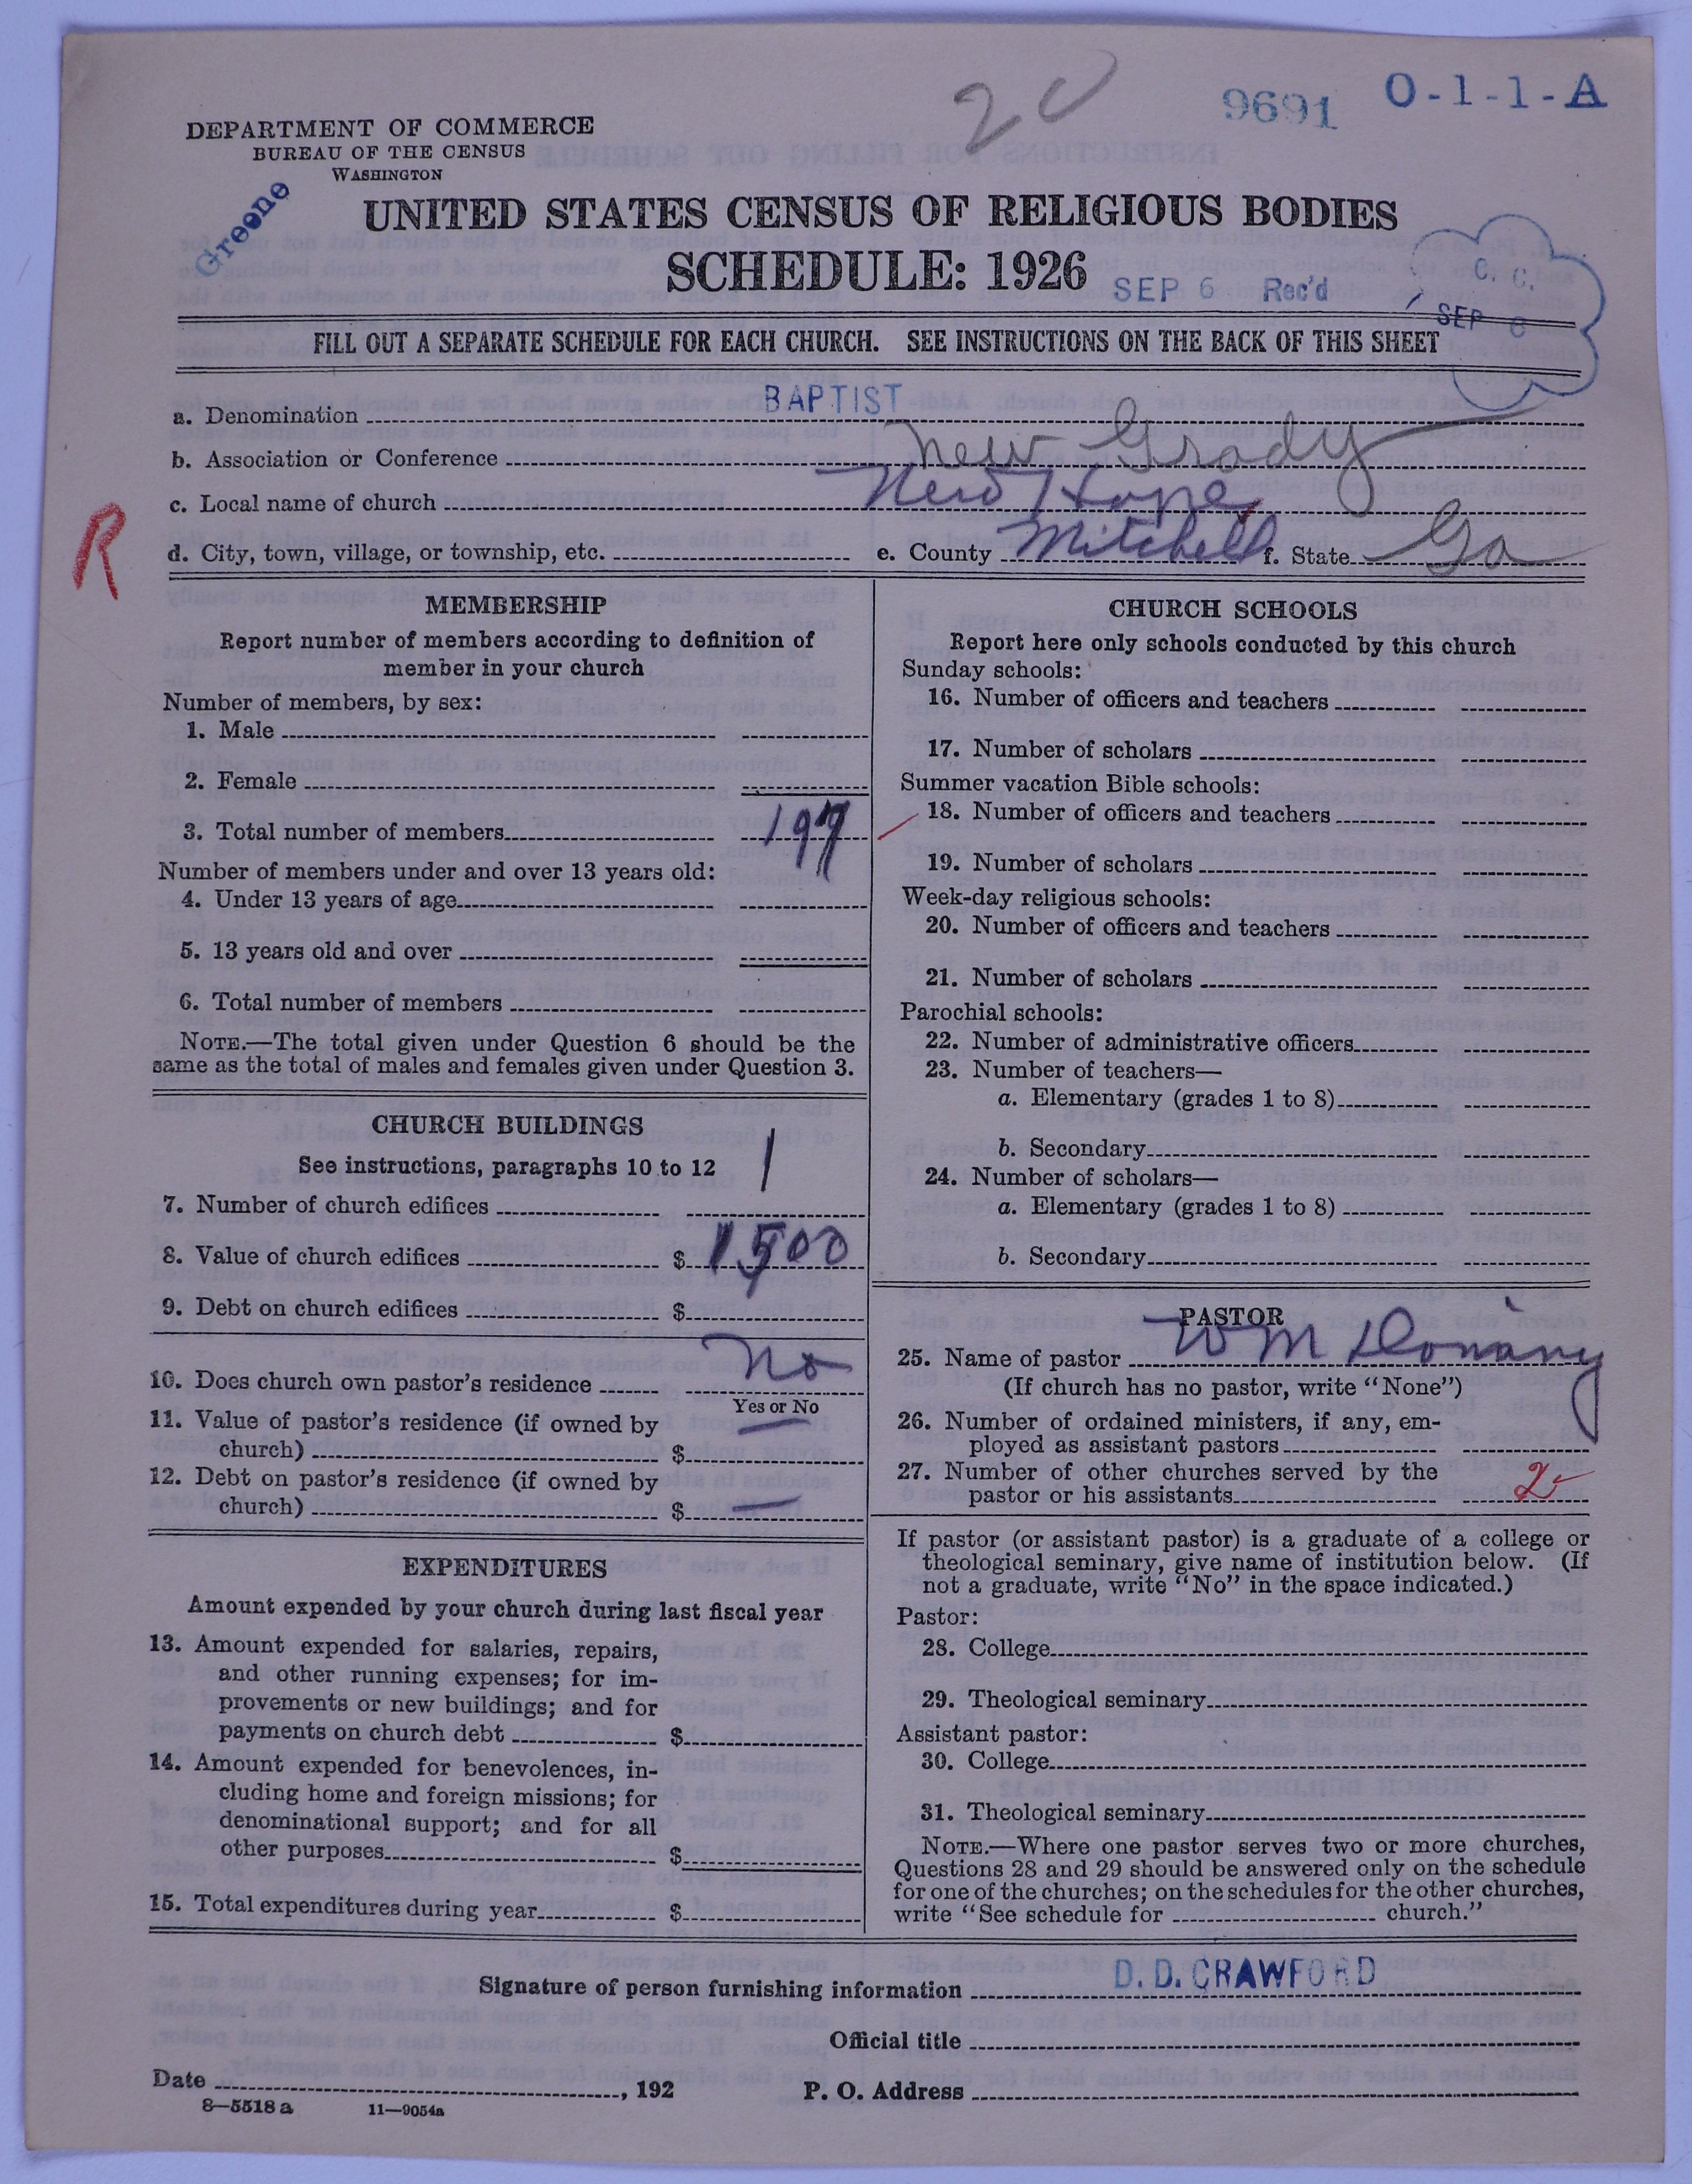 20
9691
O-1-1-A
DEPARTMENT OF COMMERCE
BUREAU OF THE CENSUS
WASHINGTON
Greene
UNITED STATES CENSUS OF RELIGIOUS BODIES
SCHEDULE: 1926
SEP 6 Rec'd
C. C.
SEP 8
FILL OUT A SEPARATE SCHEDULE FOR EACH CHURCH. SEE INSTRUCTIONS ON THE BACK OF THIS SHEET
a. Denomination BAPTIST
b. Association or Conference New Grady
c. Local name of church New Hope
R
d. City, town, village, or township, etc. e. County Mitchell f. State Ga
MEMBERSHIP
Report number of members according to definition of
member in your church
Number of members, by sex:
1. Male
2. Female
3. Total number of members
Number of members under and over 13 years old:
4. Under 13 years of age
5. 13 years old and over
6. Total number of members
NOTE.—The total given under Question 6 should be the
same as the total of males and females given under Question 3.
CHURCH BUILDINGS
See instructions, paragraphs 10 to 12
7. Number of church edifices 1
8. Value of church edifices $ 1500
9. Debt on church edifices $
10. Does church own pastor's residence No
Yes or No
11. Value of pastor's residence (if owned by
church) $ —
12. Debt on pastor's residence (if owned by
church) $ —
EXPENDITURES
Amount expended by your church during last fiscal year
13. Amount expended for salaries, repairs,
and other running expenses; for im-
provements or new buildings; and for
payments on church debt $
14. Amount expended for benevolences, in-
cluding home and foreign missions; for
denominational support; and for all
other purposes $
15. Total expenditures during year $
CHURCH SCHOOLS
Report here only schools conducted by this church
Sunday schools:
16. Number of officers and teachers
17. Number of scholars
Summer vacation Bible schools:
18. Number of officers and teachers
19. Number of scholars
Week-day religious schools:
20. Number of officers and teachers
21. Number of scholars
Parochial schools:
22. Number of administrative officers
23. Number of teachers—
a. Elementary (grades 1 to 8)
b. Secondary
24. Number of scholars—
a. Elementary (grades 1 to 8)
b. Secondary
PASTOR
25. Name of pastor W M
(If church has no pastor, write "None")
26. Number of ordained ministers, if any, em-
ployed as assistant pastors
27. Number of other churches served by the
pastor or his assistants 2
If pastor (or assistant pastor) is a graduate of a college or
theological seminary, give name of institution below. (If
not a graduate, write "No" in the space indicated.)
Pastor:
28. College
29. Theological seminary
Assistant pastor:
30. College
31. Theological seminary
NOTE.—Where one pastor serves two or more churches,
Questions 28 and 29 should be answered only on the schedule
for one of the churches; on the schedules for the other churches,
write "See schedule for church."
Signature of person furnishing information D. D. CRAWFORD
Official title
Date , 192 P. O. Address
8—5518 a 11—9054a